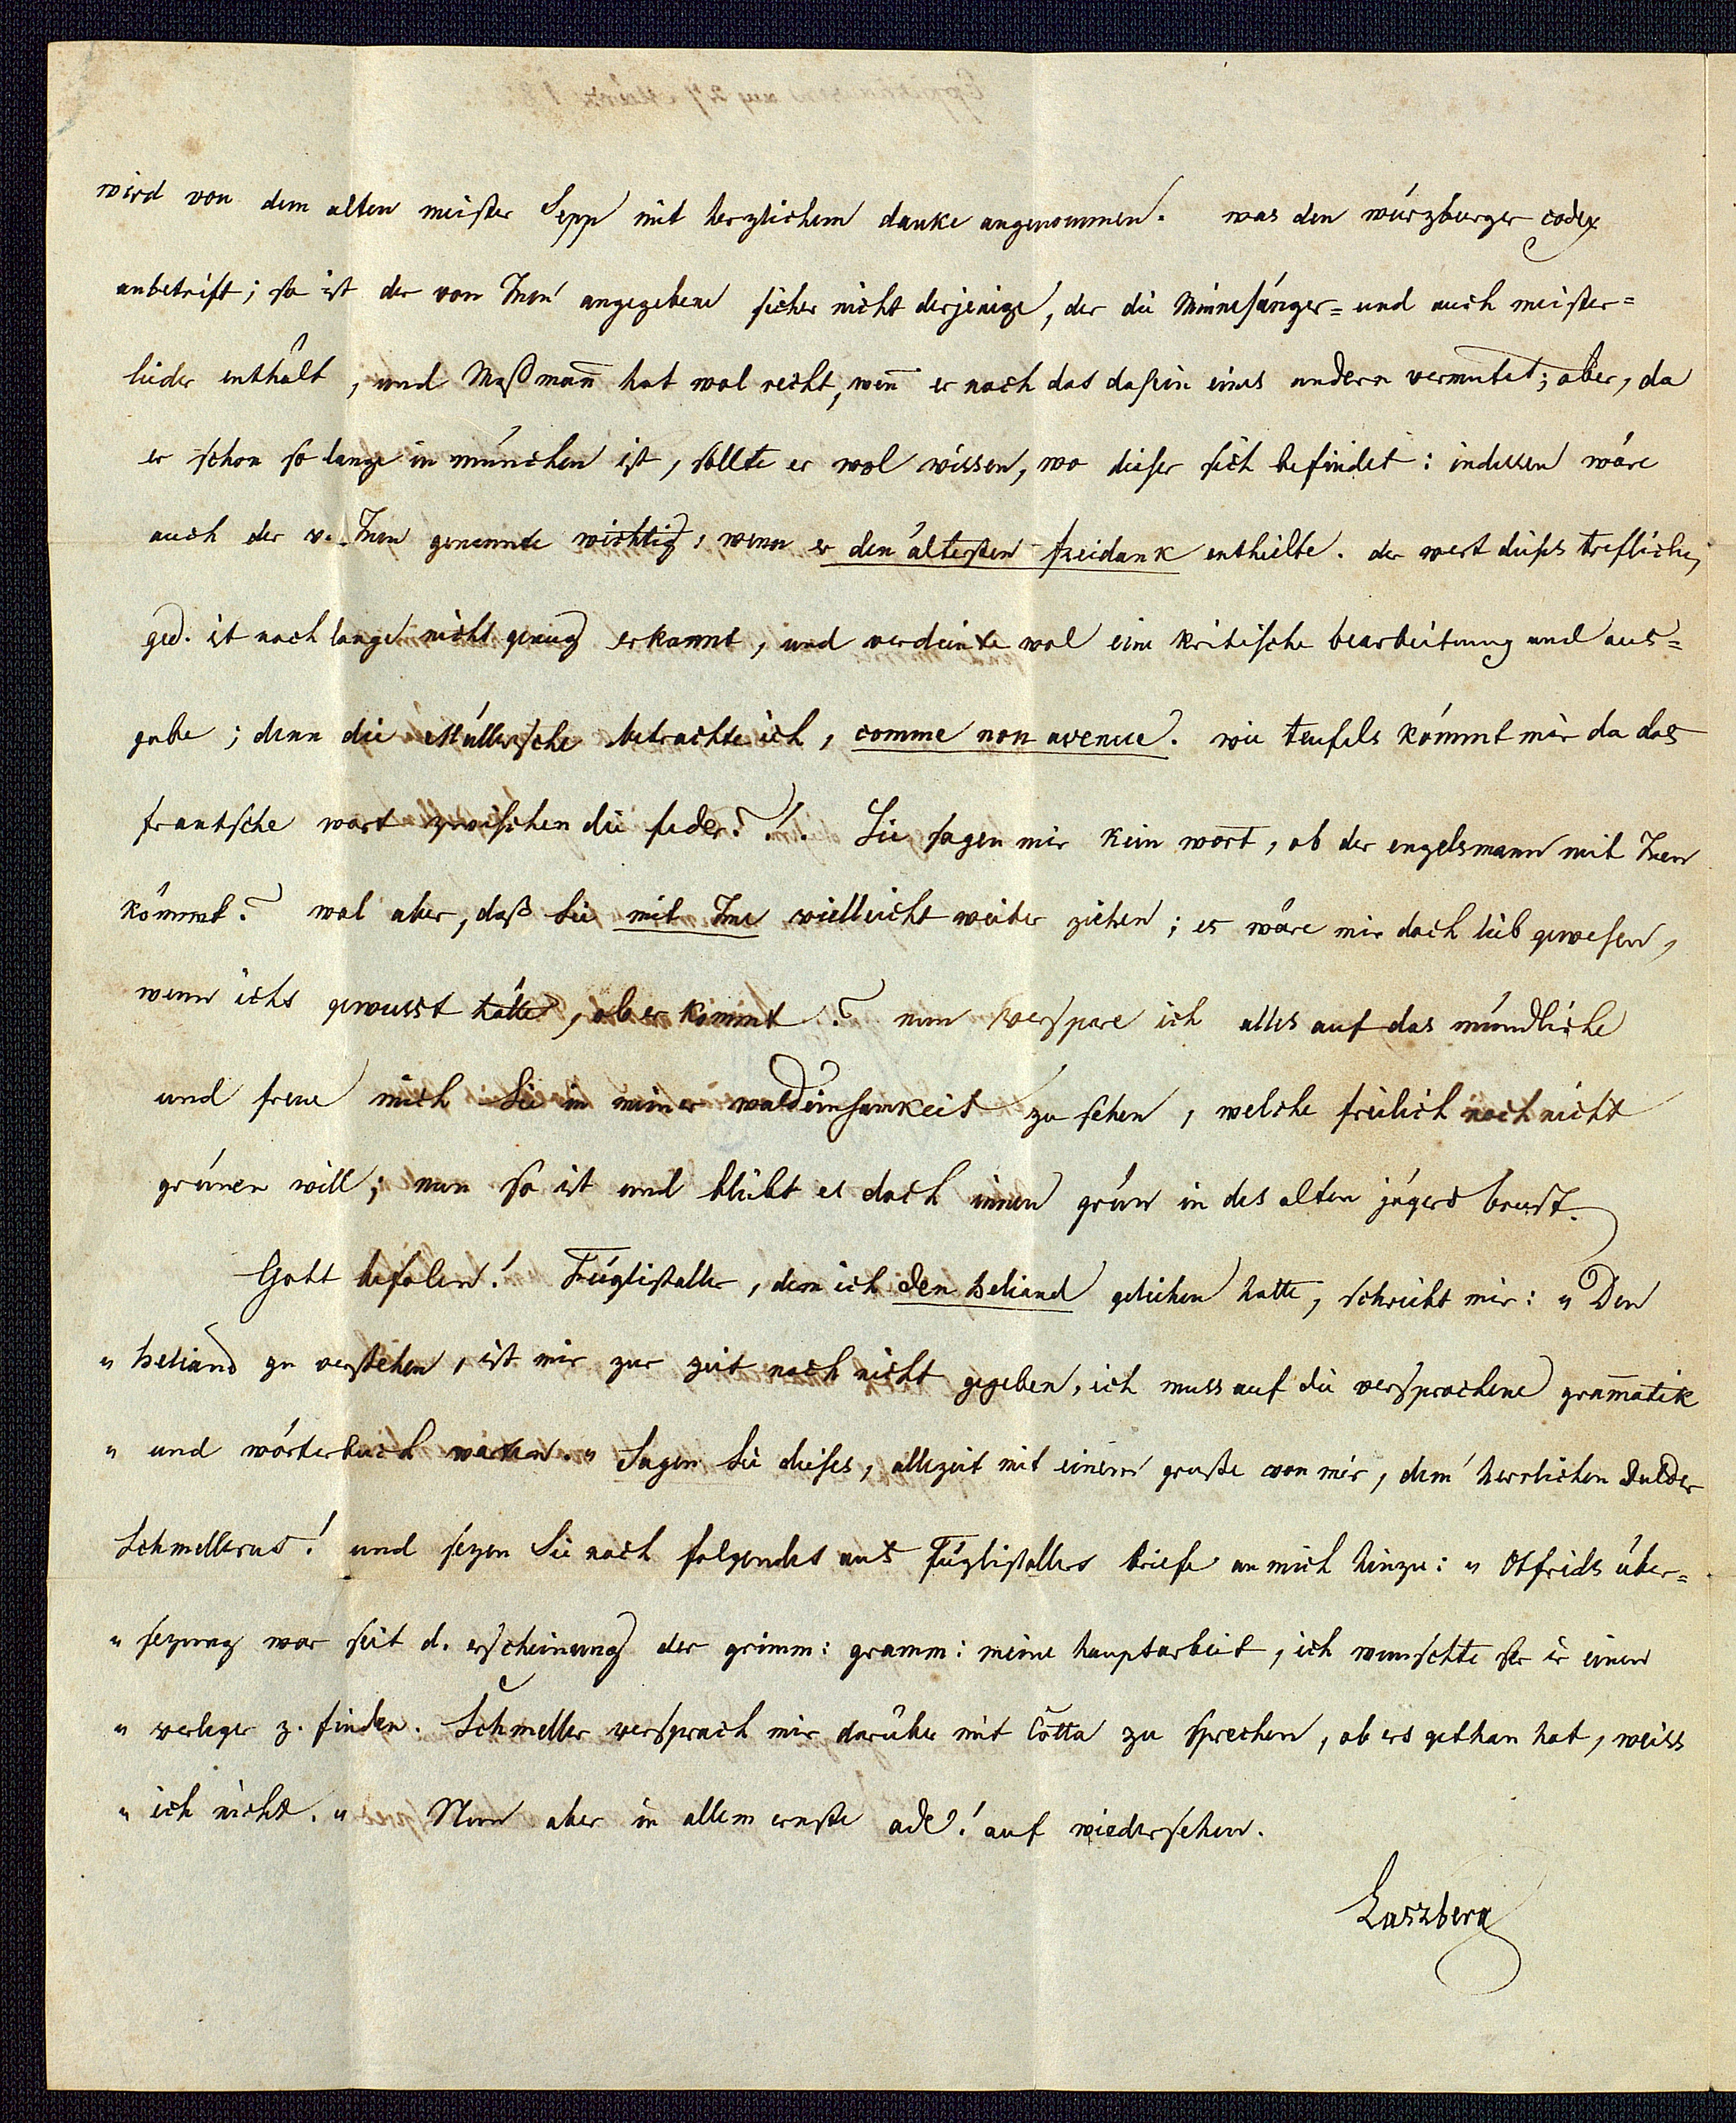 wird von dem alten meister Sepp mit herzlichem danke angenommen. was den würzburger codex
anbetrift; so ist der von Inen angegebene sicher nicht derjenige, der die Minnesänger= und auch meister=
lieder enthält, und Maßmañ hat wol recht, weñ er noch das dasein eines andern vermutet; aber, da
er schon so lange in münchen ist, sollte er wol wissen, wo dieser sich befindet: indessen wäre
auch der v. Inen genannte wichtig, wenn er den ältesten freidank enthielte. der wert dieses treflichen
ged. ist noch lange nicht genug erkannt, und verdiente wol eine kritische bearbeitung und aus=
gabe; denn die Müllersche betrachte ich, comme non avenue. wie teufels kömmt mir da das
frantsche wort zwischen die feder?! Sie sagen mir kein wort, ob der engelsmann mit Inen
kömmt? wol aber, daß Sie mit Ime vielleicht weiter ziehen; es wäre mir doch lieb gewesen,
wenn ichs gewusst hätte, ob er kömmt? nun verspare ich alles auf das mündliche
und freue mich Sie in meiner waldeinsamkeit zu sehen, welche freilich noch nicht
grünen will; nun so ist und bleibt es doch innen grün in des alten jägers brust.
Gott befolen! Füglistaller, dem ich den heliand geliehen hatte, schreibt mir: „Den
„heliand zu verstehen, ist mir zur zeit noch nicht gegeben, ich muss auf die versprochene gram̄atik
„und wörterbuch warten.„ Sagen Sie dieses, allezeit mit einem gruße von mir, dem herrlichen dulder
Schmellerus! und sezen Sie noch folgendes aus Füglistallers briefe an mich hinzu: „Otfrids über=
„sezung war seit d. erscheinung der grimm: gramm: meine hauptarbeit, ich wünschte ser ir einen
„verleger z. finden. Schmeller versprach mir darüber mit Cotta zu sprechen, ob ers gethan hat, weiss
„ich nicht.„ Nun aber in allem ernste ade! auf wiedersehen.
Laszberg